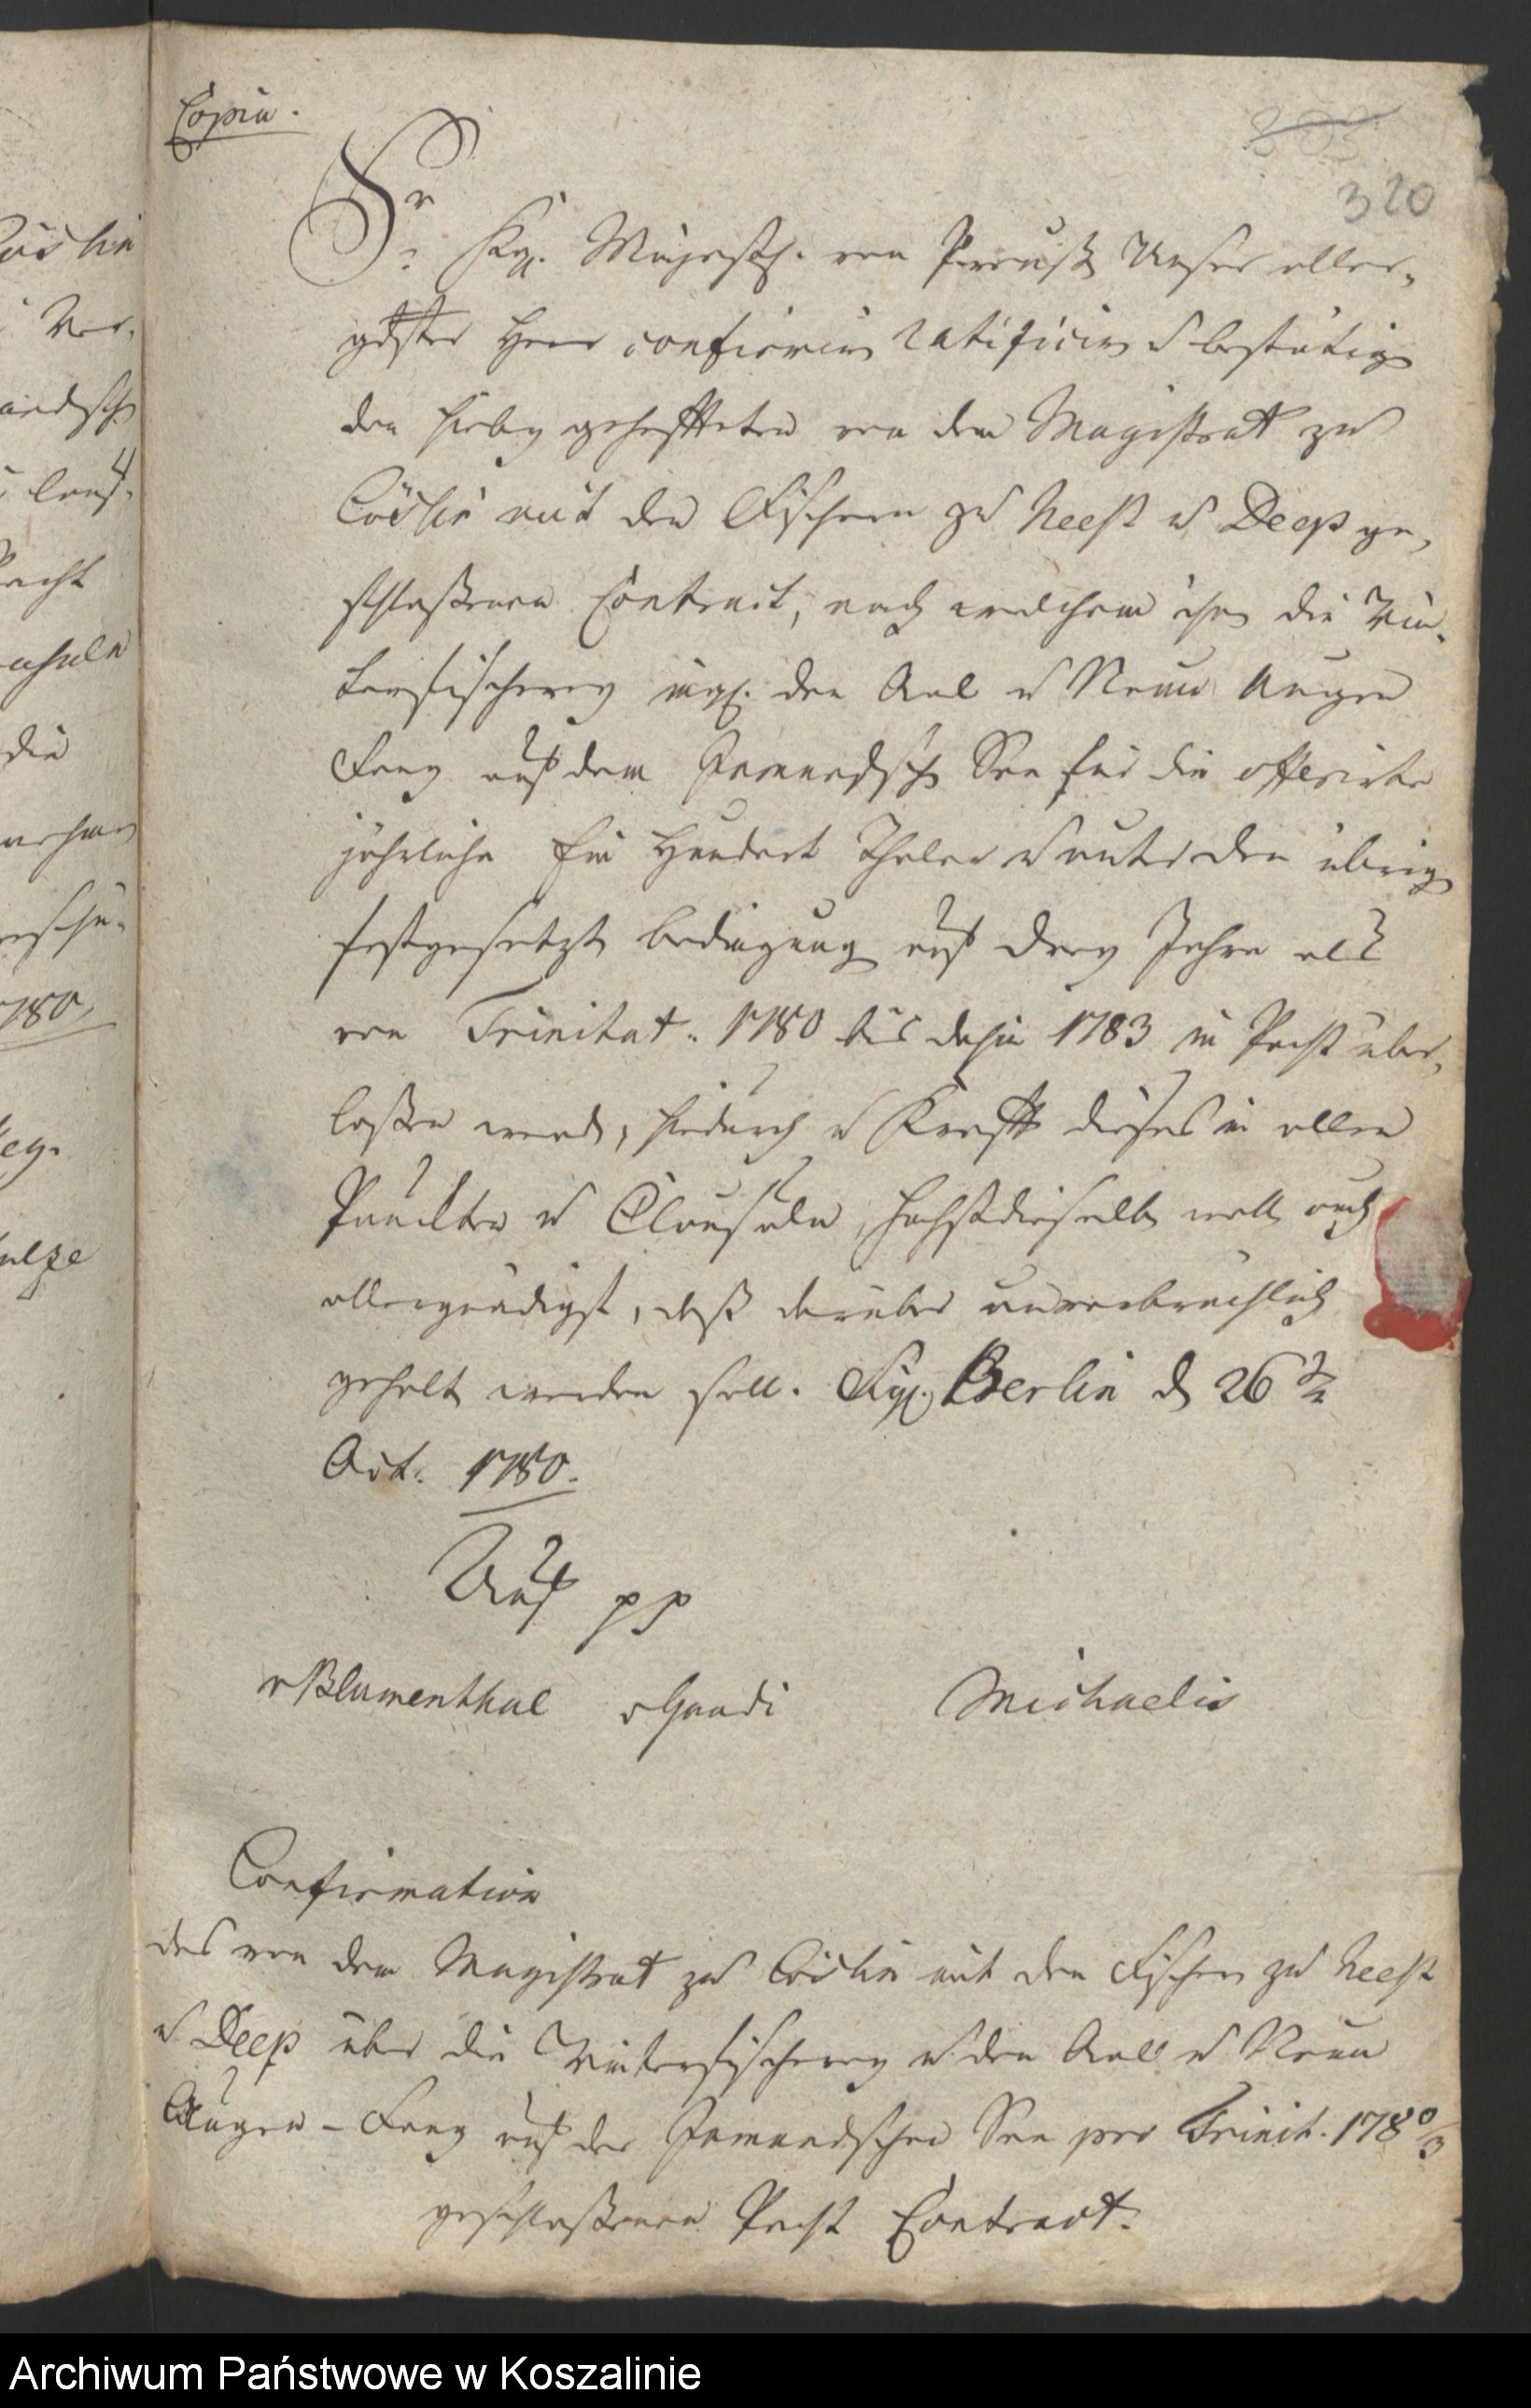 Copia.
320
Sr
Kgl. Majestät von Preuß Unser aller-
gdster Herr confirmiren ratificiren u bestätig
den hieby gehefteten von dem Magistrat zu
Cöslin mit den Fischern zu Neest u Deep ge-
schloßenen Contract, nach welchem ihn die Win-
terfischerey ingl. den Aal u Neun Augen
Fang auf dem Jamundsch See für die offerirte
jährliche Ein Hundert Thaler u unter den übrig
festgesetzt bedingung auf drey Jahre als
von Trinitat. 1780 bis dahin 1783 in Pacht über-
laßen word, hiedurch u Krafft dieses in allen
Puncten u Clausuln, Höchstdieselb woll auch
allergnädigst, daß darüber unverbrüchlich
gehalt werden soll. Sigl. Berlin d 26 t
Oct. 1780.
Auf pp
v Blumenthal v Gaudi Michaelis
Confirmation
des von dem Magistrat zu Cöslin mit den Fischern zu Neest
u Deep über die Winterfischerey u den Aall u Neun
Augen - Fang auf der Jamundschen See pro Trinit. 1780/3
geschloßenen Pacht Contract.
öslin
Ver-
andsch
acht
die
1780
Archiwum Państwowe w Koszalinie